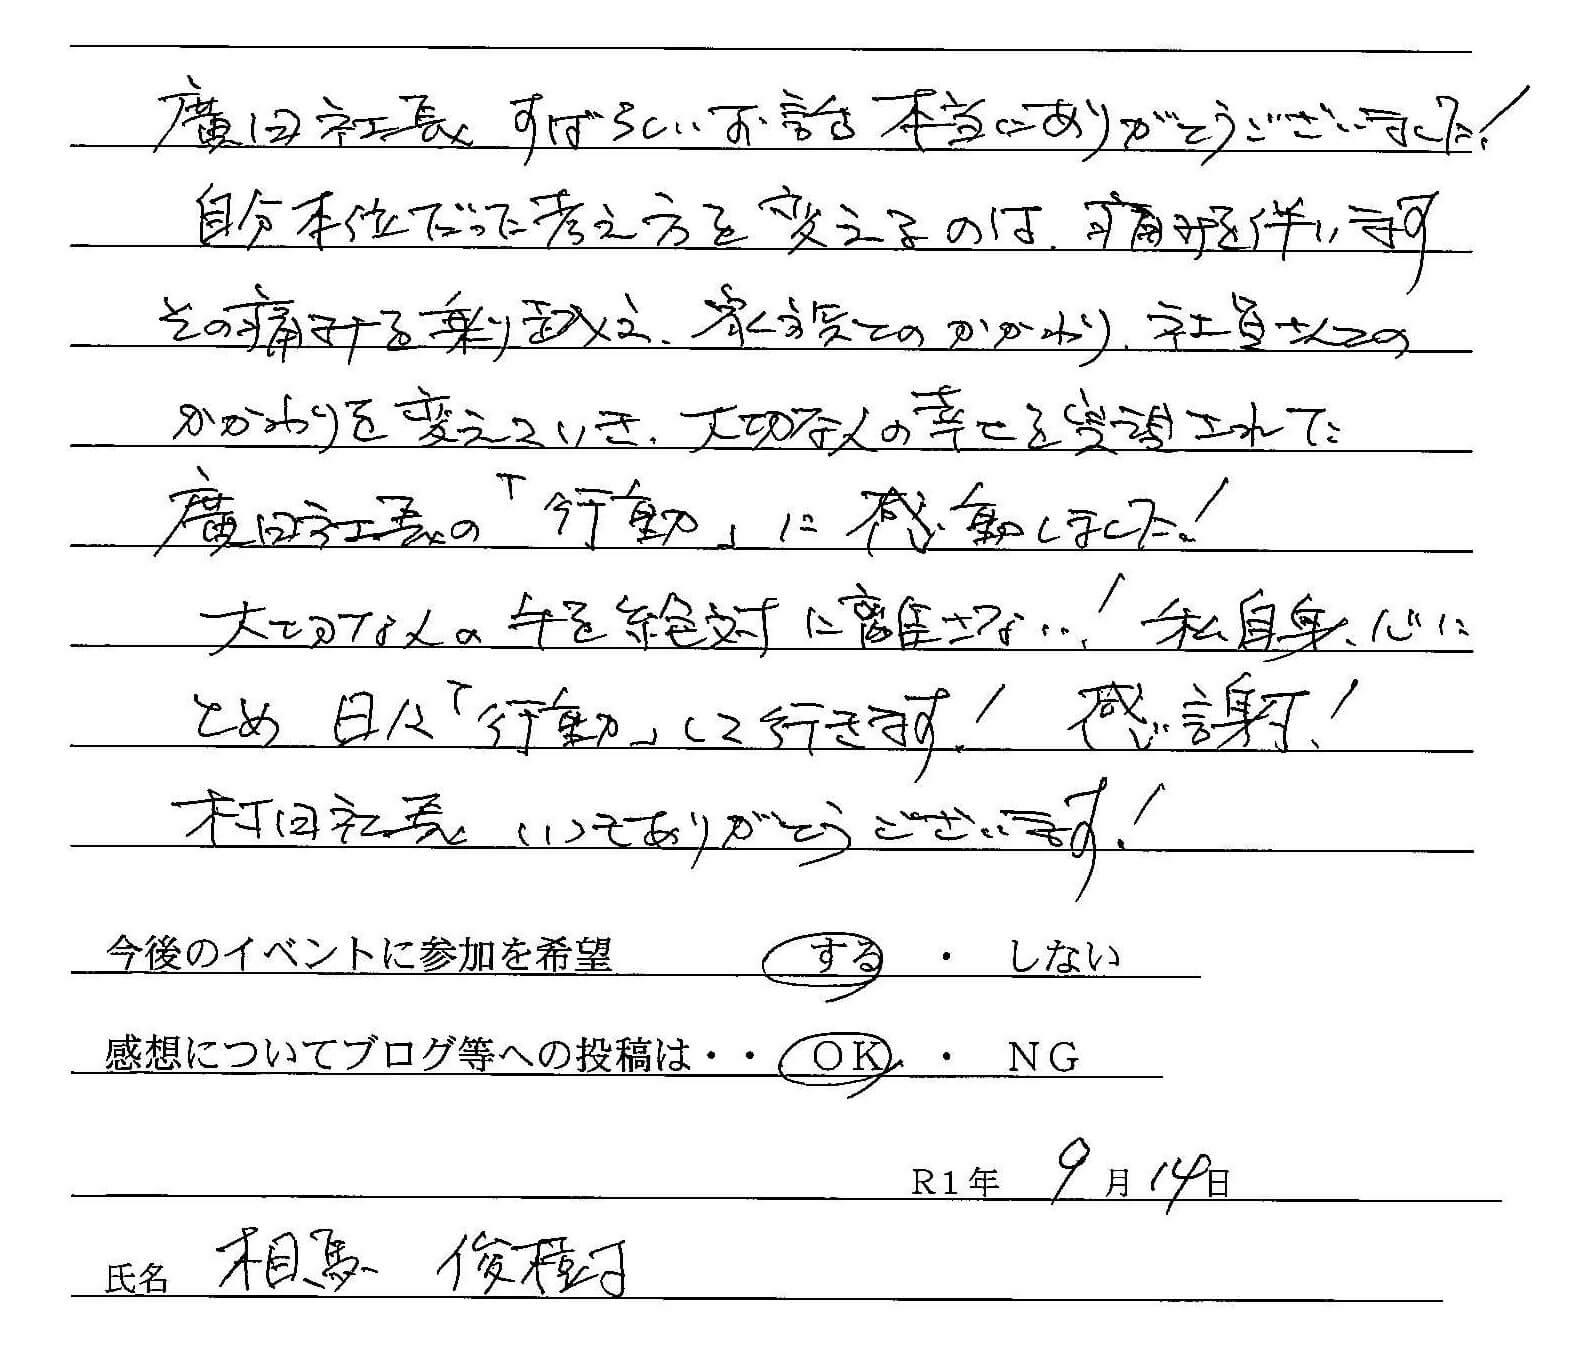 廣田社長 すばらしいお話 本当にありがとうございました!
自分本位だった考え方を変えるのは、痛みを伴います
その痛みを乗り越え、家族とのかかわり、社員さんとの
かかわりを変えていき、大切な人の幸せを実現されてた
廣田社長の「行動」に感動しました!
大切な人の手を絶対に離さない! 私自身、心に
とめ 日々「行動」して行きます! 感謝!
村田社長 いつもありがとうございます!
今後のイベントに参加を希望 する ・ しない
感想についてブログ等への投稿は・・ OK ・ NG
R1年 9月14日
氏名 相馬 俊樹